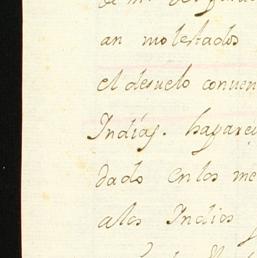 an molestados
el desuelo conven
Indias. haparec
dado en los me
alos Indios